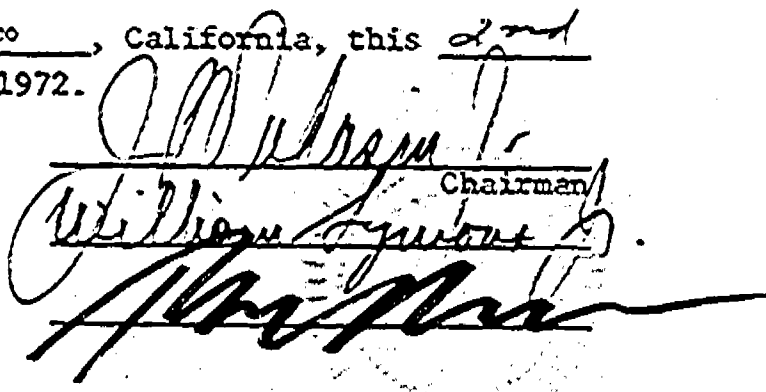 co, California, this 2nd
1972.
Chairman
William Symons Jr.